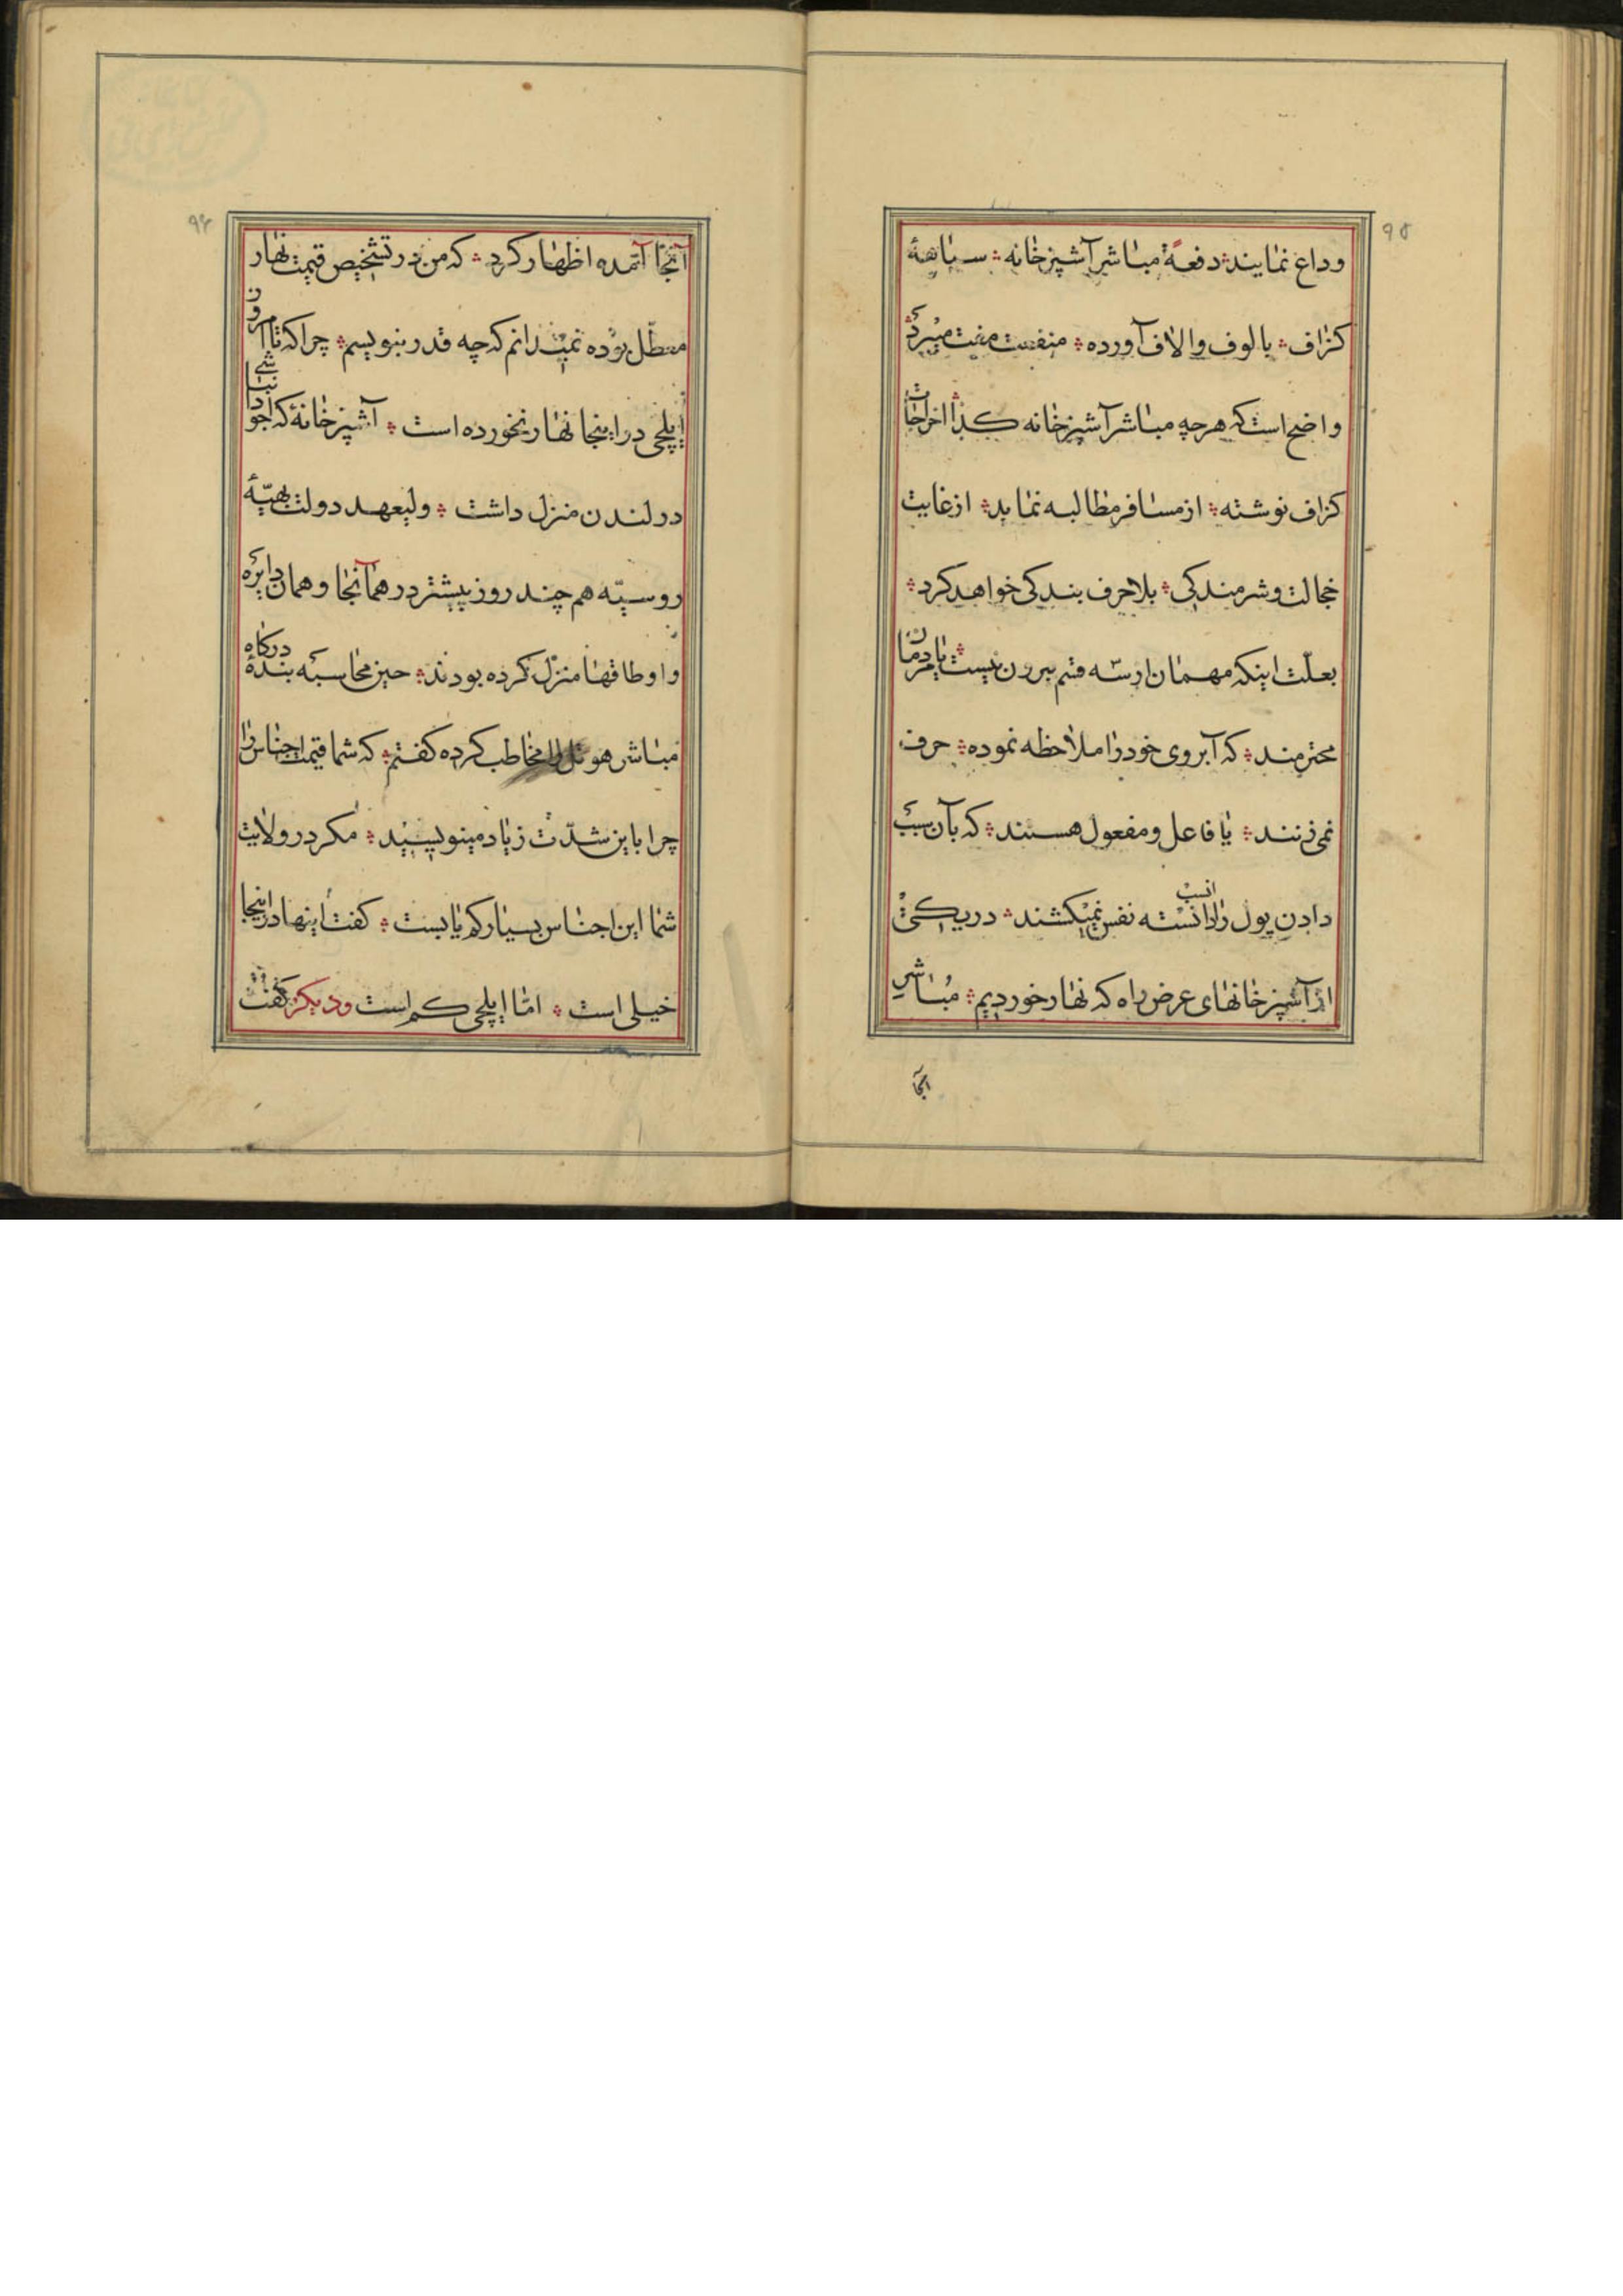 ۹۵
وداع نمایند؞ دفعةً مباشر آشپزخانه؞ سیاههٔ
کزاف؞ بالوف والاف آورده؞ منفعت مفت میبرد؞
واضح است که هرچه مباشر آشپزخانه کذا؞ اخراجات
کزاف نوشته؞ از مسافر مطالبه نماید؞ از غایت
خجالت و شرمندکی؞ بلا حرف بندکی خواهد کرد؞
بعلّت اینکه مهمان از سه قسم بیرون نیست؞ یا مردمان
محترمند؞ که آبروی خود را ملاحظه نموده؞ حرف
نمی زنند؞ یا فاعل و مفعول هستند؞ که بآن سبب
دادن پول را انسب دانسته نفس نمیکشند؞ در یکی
از آشپزخانهای عرض راه که نهار خوردیم؞ مباشر
آنجا
۹۶
آنجا آمده اظهار کرد؞ که من در تشخیص قیمت نهار
معطّل بوده نمیدانم که چه قدر بنویسم؞ چرا که تا امروز
ایلچی در اینجا نهار نخورده است؞ آشپزخانهٔ که اجودانباشی
در لندن منزل داشت؞ ولیعهد دولت بهیّهٔ
روسیّه هم چند روز پیشتر در همانجا و همان دایره
و اوطاقها منزل کرده بودند؞ حین محاسبه بندهٔ درکاه
مباشر هوتل را مخاطب کرده کفتم؞ که شما قیمت اجناس را
چرا باین شدّت زیاد مینویسید؞ مکر در ولایت
شما این اجناس بسیار کم یابست؞ کفت اینها در اینجا
خیلی است؞ امّا ایلچی کم است و دیکر کفت